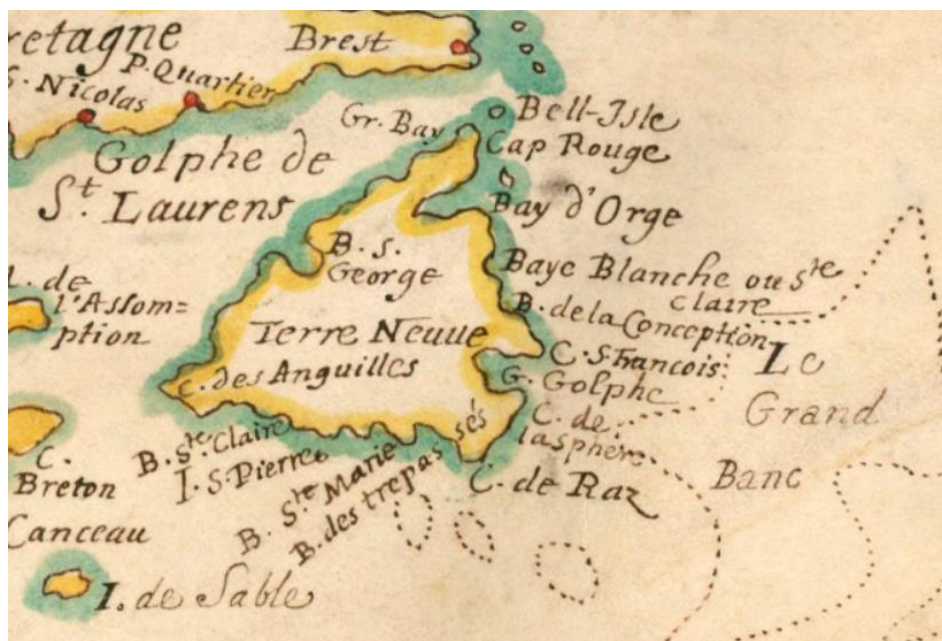 retagne
Brest
P. Quartier
S. Nicolas
Gr. Bay
Bell-Isle
Cap Rouge
Golphe de
St. Laurens
Bay d'Orge
B. s.
George
Baye Blanche ou Ste
Claire
I. de
l'Assom=
ption
B. de la Conception
Terre Neuue
C. S. Francois
Le
Grand
Banc
C. des Anguilles
G. Golphe
C. de
la sphère
B. Ste. Claire
I. S. Pierre
B. Ste Marie
B. des trepas
sés
C. de Raz
C.
Breton
Canceau
I. de Sable